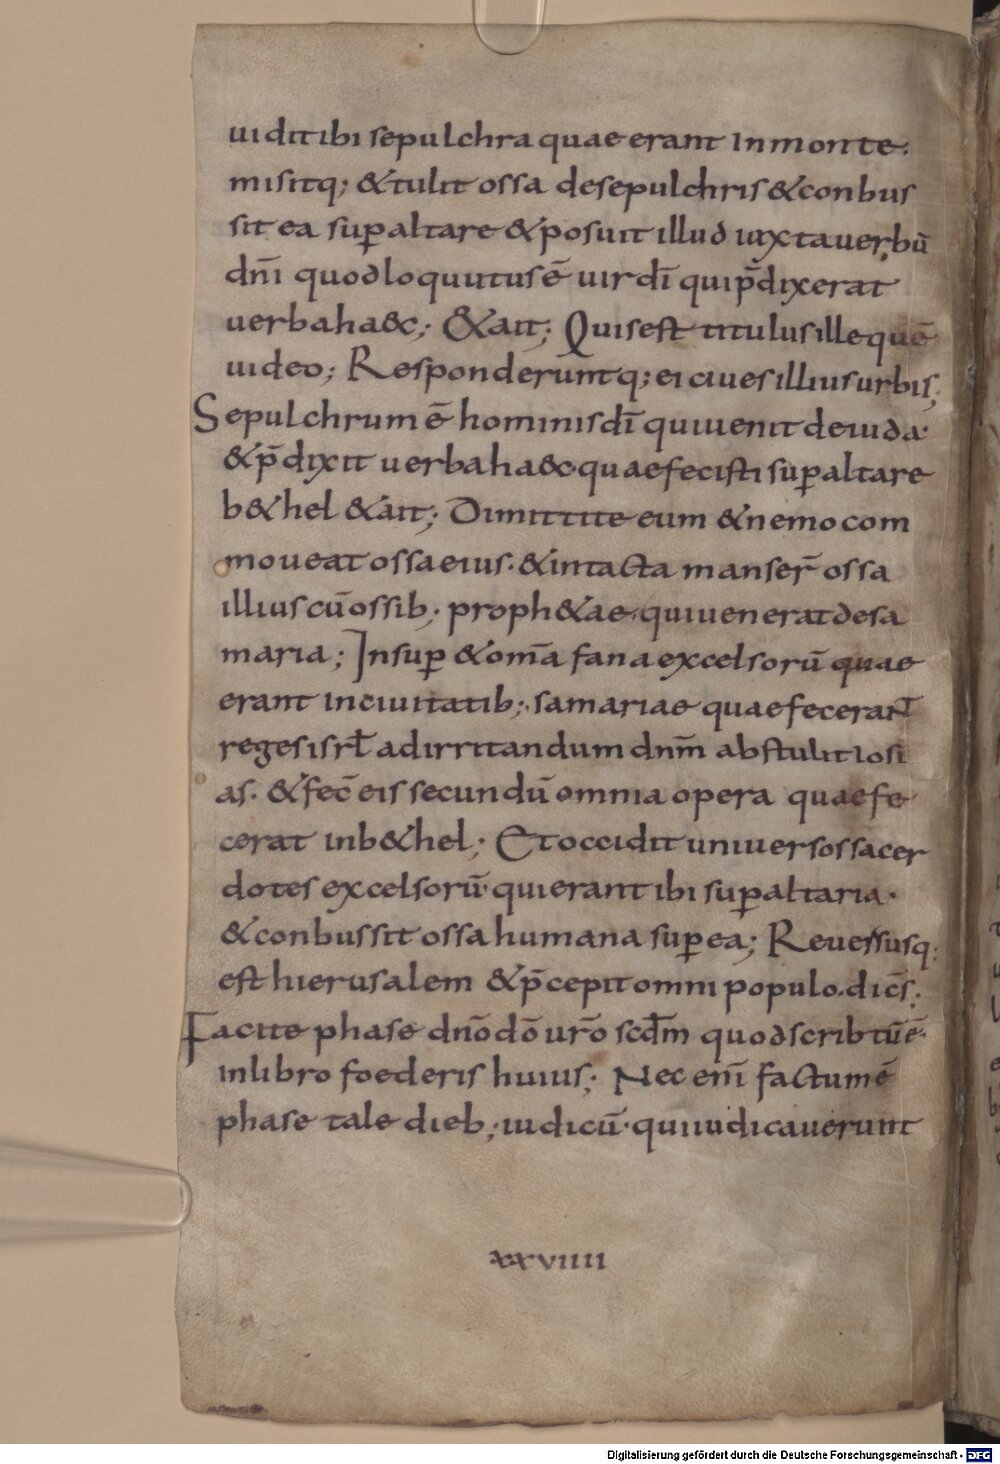 uidit ibi sepulchra quae erant In monte.
misitq; & tulit ossa desepulchris & conbus
sit ea sup̄ altare & posuit illud iuxta uerbū
dn̄i quod loquutus ē uir dī qui p̄dixerat
uerba haec; & ait; Quis est titulus ille quē
uideo; Responderuntq; ei ciues illius urbis;
Sepulchrum ē hominis dī qui uenit de iuda·
& p̄dixit uerba haec· quae fecisti sup̄ altare
b&hel & ait; Dimittite eum & nemo com
moueat ossa eius· & intacta manser̄ ossa
illius cū ossib; proph&ae· qui uenerat desa
maria; Insup̄ & om̄a fana excelsorū quae
erant inciuitatib; samariae quae fecerant
reges isrl̄ adirritandum dnm̄ abstulit iosi
as· & fec̄ eis secundū omnia opera quae fe
cerat inb&hel; Et occidit uniuersos sacer
dotes excelsorū· qui erant ibi sup̄ altaria·
& conbussit ossa humana sup̄ ea; Reuersusq;
est hierusalem & p̄cepit omni populo· dic̄s;
Facite phase dnō dō ur̄o scd̄m quod scribtū ē·
inlibro foederis huius; Nec enī factum ē
phase tale dieb; iudicū· qui iudicauerunt
xxviiii
Digitalisierung gefördert durch die Deutsche Forschungsgemeinschaft - DFG